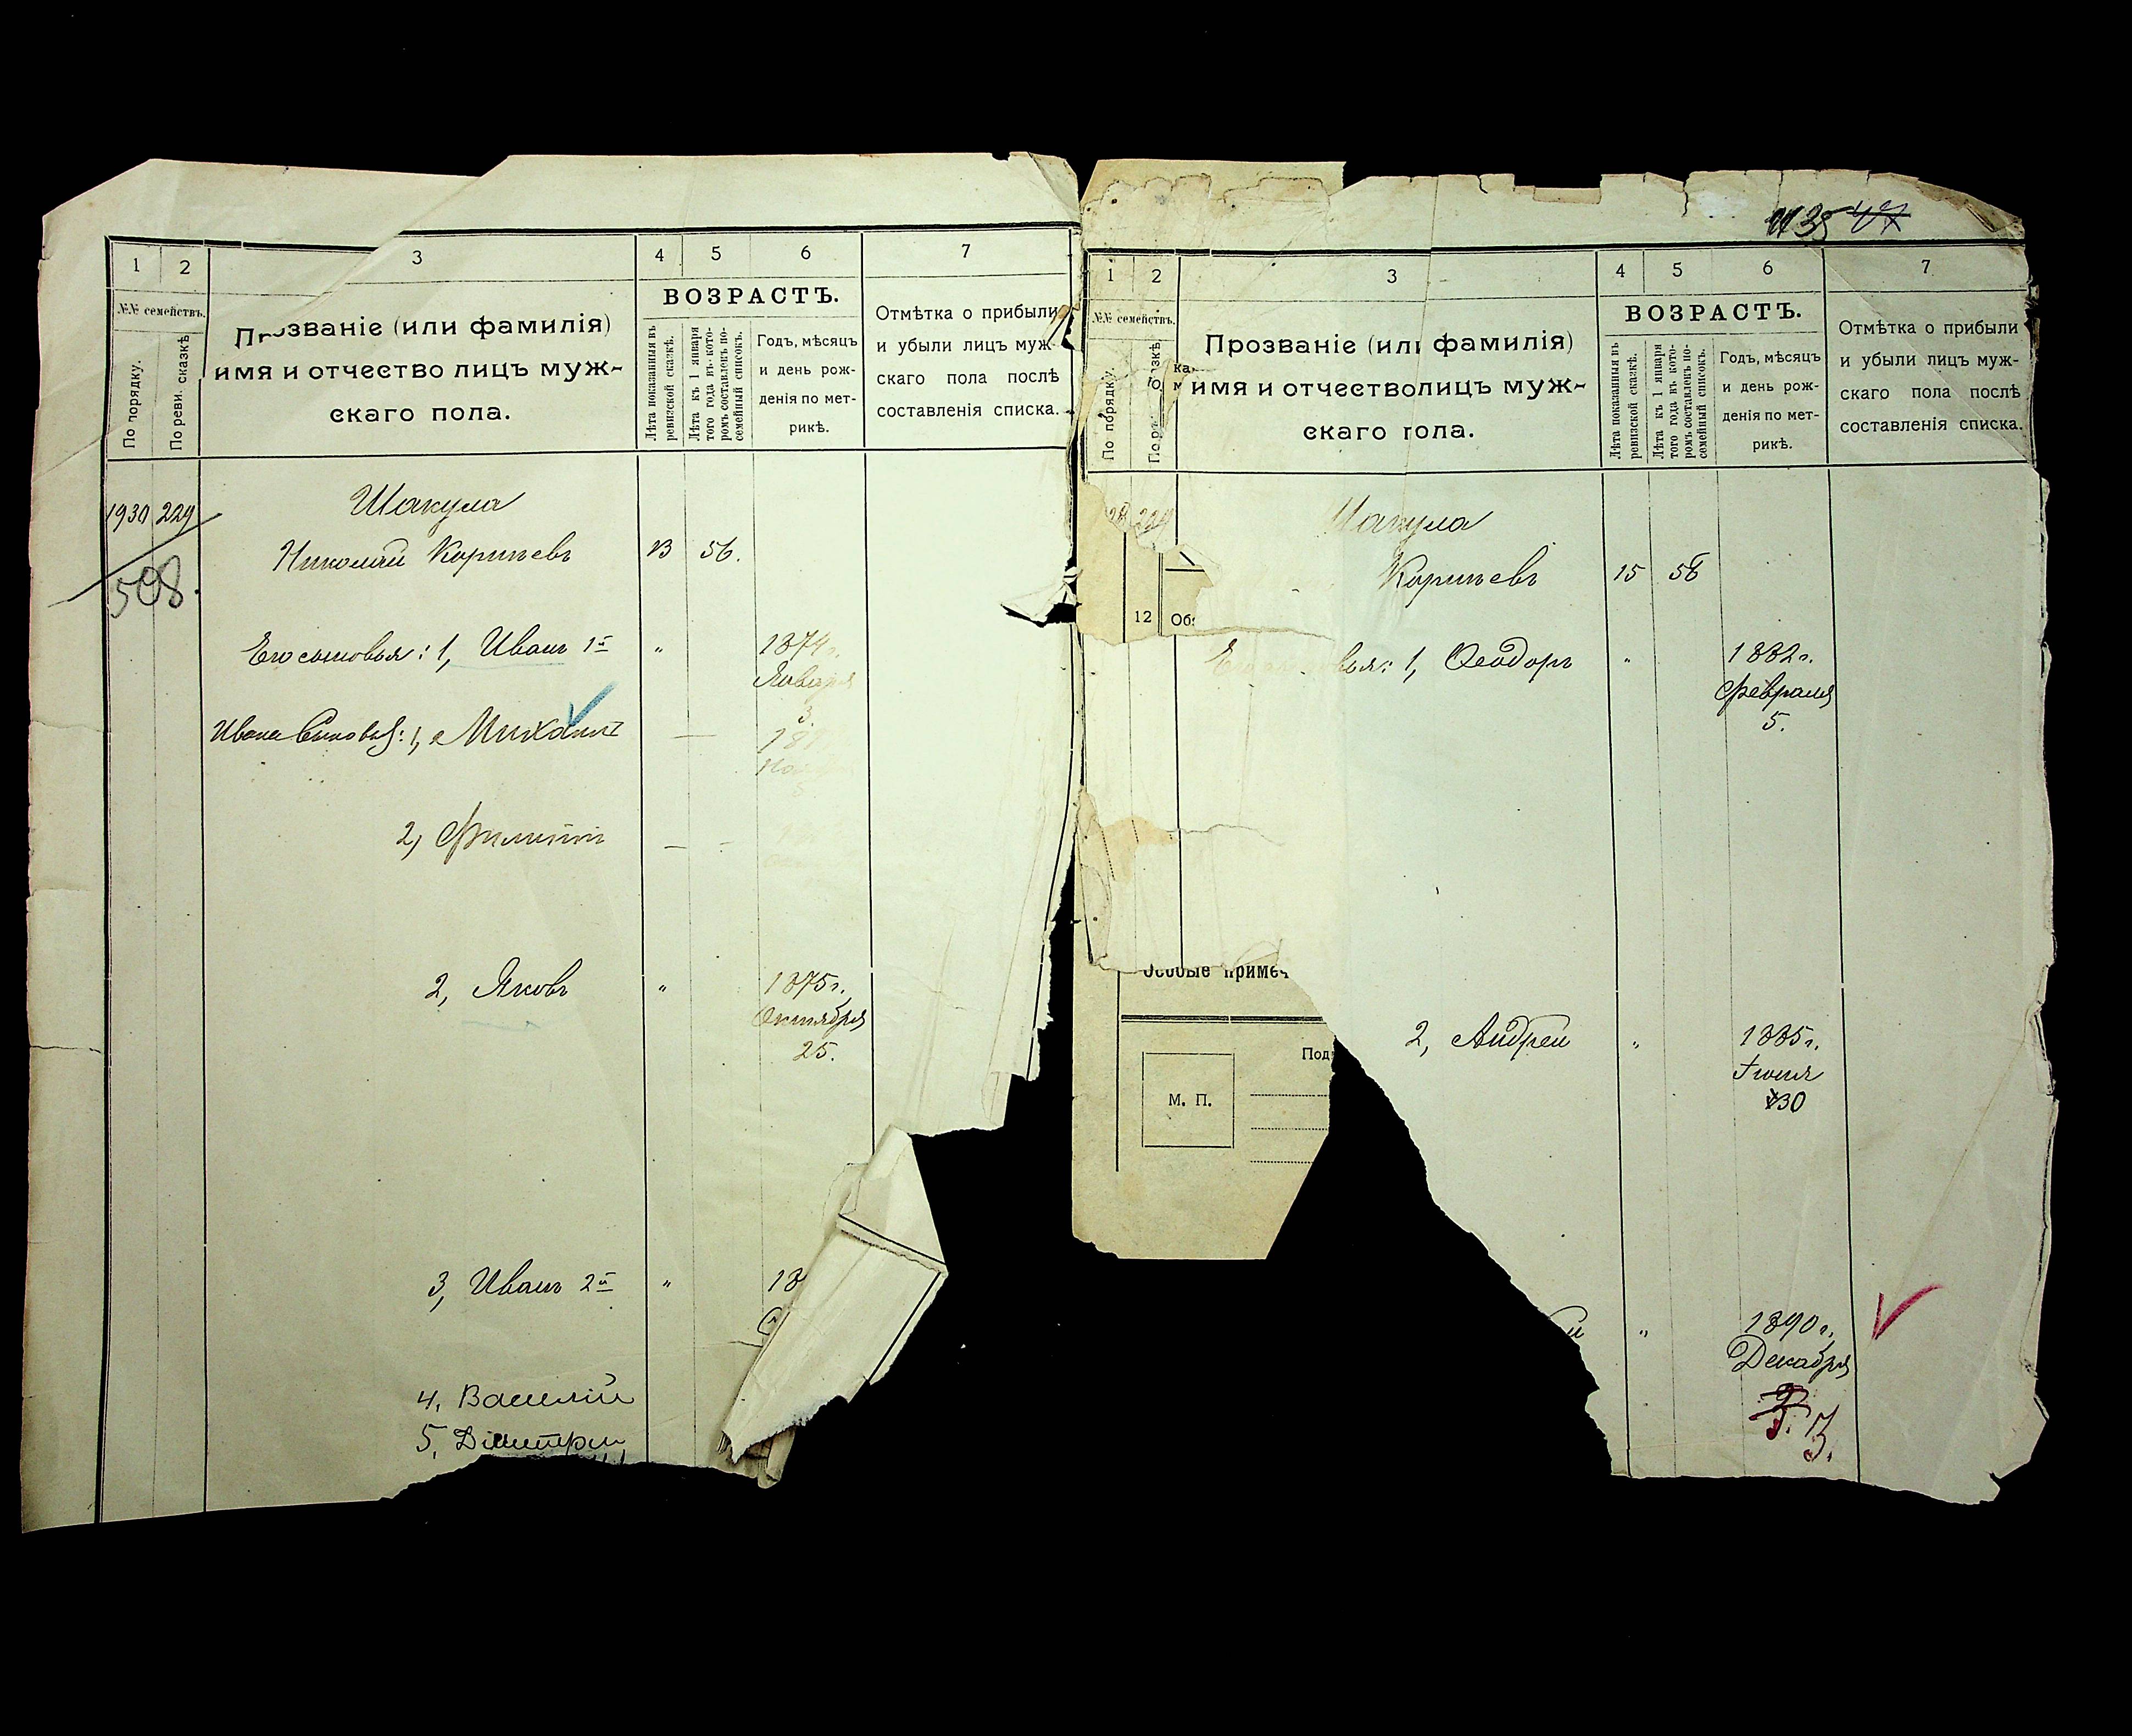 1 2 3 4 5 6 7
№№ семействъ.
По порядку.
По реви. сказкѣ
Прозваніе (или фамилія)
имя и отчество лицъ муж-
скаго пола.
ВОЗРАСТЪ.
Лѣта показанныя въ
ревизской сказкѣ.
Лѣта къ 1 января
того года въ кото-
ромъ составленъ по-
семейный списокъ.
Годъ, мѣсяцъ
и день рож-
денія по мет-
рикѣ.
Отмѣтка о прибыли
и убыли лицъ муж-
скаго пола послѣ
составленія списка.
1930 229 Шакула
Николай Корнѣевъ 13 56.
508.
Его сыновья: 1, Иванъ 1й " 1874 г.
Января
3.
Ивана Сыновья: 1, Михаилъ —
2, Филиппъ — -
2, Яковъ " 1875 г.
Октября
25.
3, Иванъ 2й " 18
4. Василій
5. Димитрій
1 2 3 4 5 6 7
№№ семействъ.
По порядку.
Прозваніе (или фамилія)
имя и отчество лицъ муж-
скаго пола.
ВОЗРАСТЪ.
Лѣта показанныя въ
ревизской сказкѣ.
Лѣта къ 1 января
того года въ кото-
ромъ составленъ по-
семейный списокъ.
Годъ, мѣсяцъ
и день рож-
денія по мет-
рикѣ.
Отмѣтка о прибыли
и убыли лицъ муж-
скаго пола послѣ
составленія списка.
Шакула
Корнѣевъ 15 58
12
1, Ѳеодоръ " 1882 г.
Февраля
5.
Особые
М. П.
2, Андрей " 1885 г.
Іюня
30
" 1890 г.
Декабря